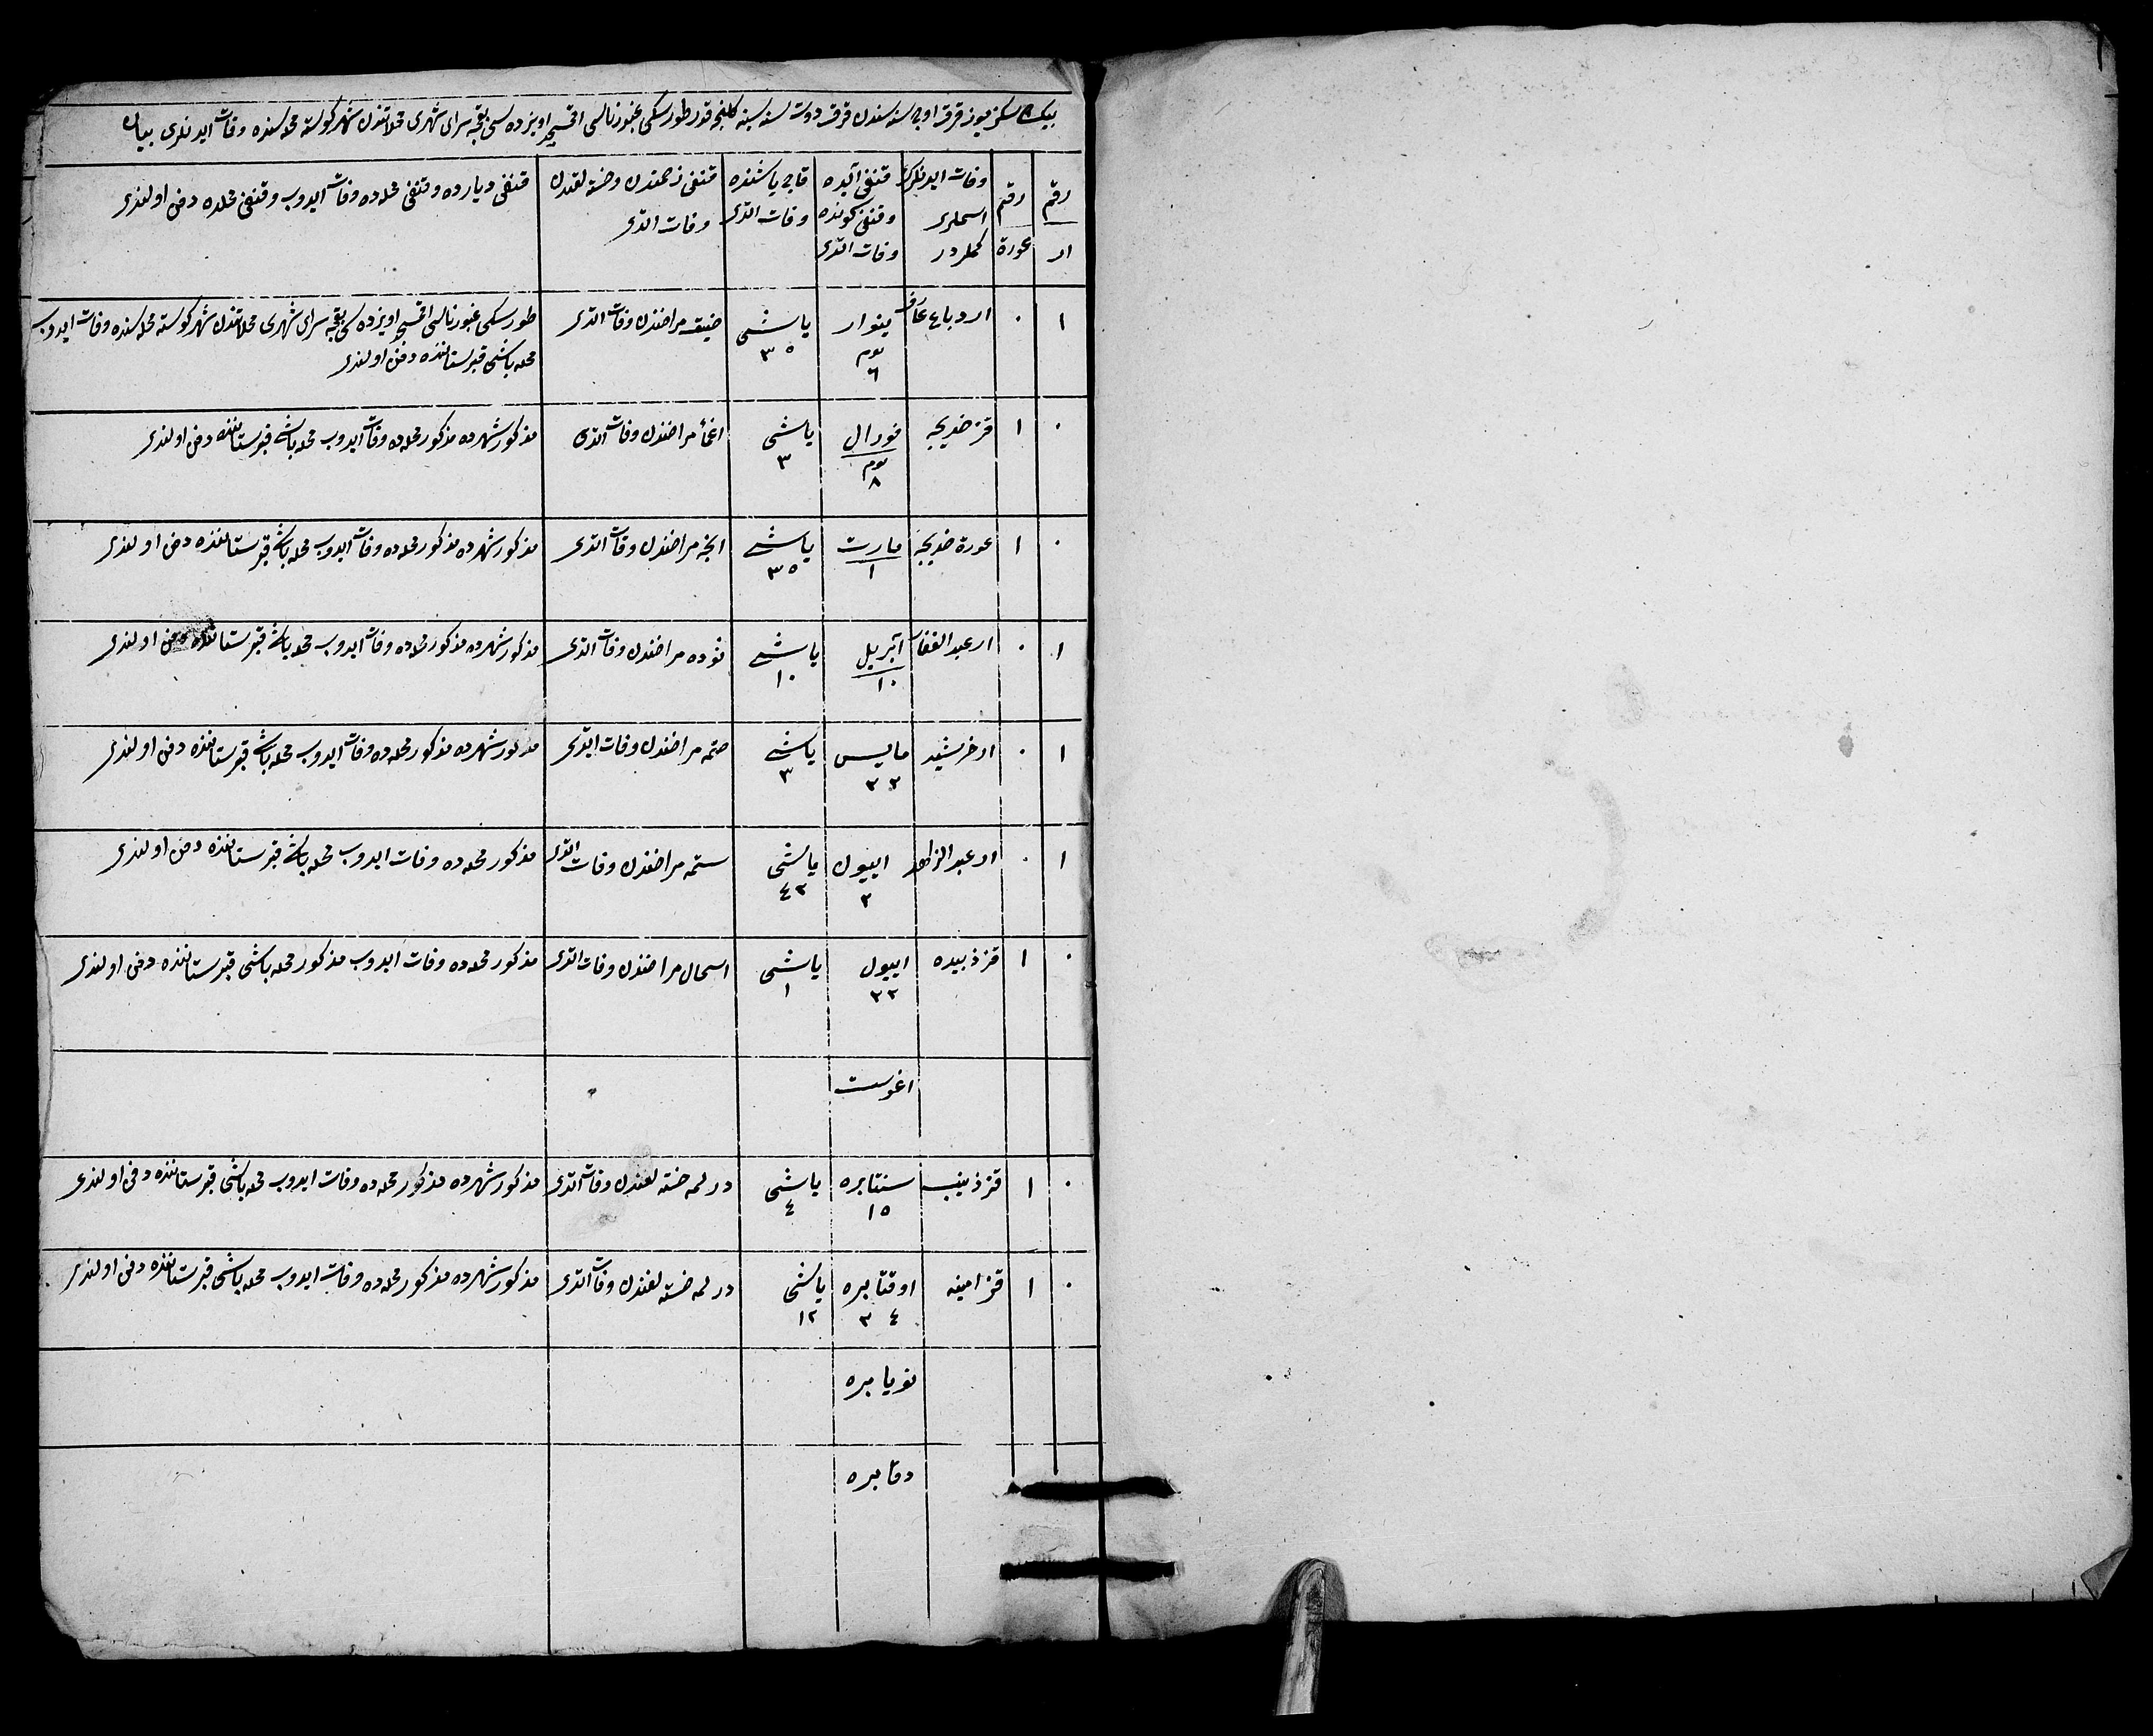 بیك سكز یوز قرق اوچ سنه سندن قرق دورت سنه سینه كلنجه قدر طورسكی غبورنالسی اویزده سی بقچه سرای شهری محلاتندن شهركوسته محله سنده وفات ایدنلری بیان
رقم ار
رقم عورة
وفات ایدنلرك اسملری كملردر
قنغی آیده وقنغی كونده وفات اتدی
قاچ یاشنده وفات اتدی
قنغی زحمتدن وخسته لقدن وفات اتدی
قنغی دیارده وقنغی محله ده وفات ایدوب وقنغی محلده دفن اولندی
۱ ۰ ار دباغ عارف ینوار یوم ٦ یاشی ۳٥ ضیق مراضندن وفات اتدی طورسكی غبورنالسی اویزده سی بقچه سرای شهری محلاتندن شهركوسته محله سنده وفات ایدوب
محله باشی قبرستاننده دفن اولندی
۰ ۱ قز خدیجه فورال یوم ۸ یاشی ۳ اغماء مراضندن وفات اتدی مذكور شهرده مذكور محله ده وفات ایدوب محله باشی قبرستاننده دفن اولندی
۰ ۱ عورة خدیجه مارت ۱ یاشی ۳٥ مراضندن وفات اتدی مذكور شهرده مذكور محله ده وفات ایدوب محله باشی قبرستاننده دفن اولندی
۱ ۰ ار عبد الغفار آبریل ۱۰ یاشی ۱۰ مراضندن وفات اتدی مذكور شهرده مذكور محله ده وفات ایدوب محله باشی قبرستاننده دفن اولندی
۱ ۰ ار خرشید مایس ۲۳ یاشی ۳ صتمه مراضندن وفات ایتدی مذكور شهرده مذكور محله ده وفات ایدوب محله باشی قبرستاننده دفن اولندی
۱ ۰ ار عبد الزاهد اییون ۳ یاشی ٤۲ ستمه مراضندن وفات اتدی مذكور محله ده وفات ایدوب محله باشی قبرستاننده دفن اولندی
۰ ۱ قز زبیده اییول ۲۲ یاشی ۱ اسهال مراضندن وفات اتدی مذكور محله ده وفات ایدوب مذكور محله باشی قبرستاننده دفن اولندی
اغوست
۰ ۱ قز زینب سنتابره ۱٥ یاشی ٤ درلمه خسته لغندن وفات اتدی مذكور شهرده مذكور محله ده وفات ایدوب محله باشی قبرستاننده دفن اولندی
۰ ۱ قز امینه اوقتابره ۲٤ یاشی ۱۲ درلمه خسته لغندن وفات اتدی مذكور شهرده مذكور محله ده وفات ایدوب محله باشی قبرستاننده دفن اولندی
نویابره
دقابره